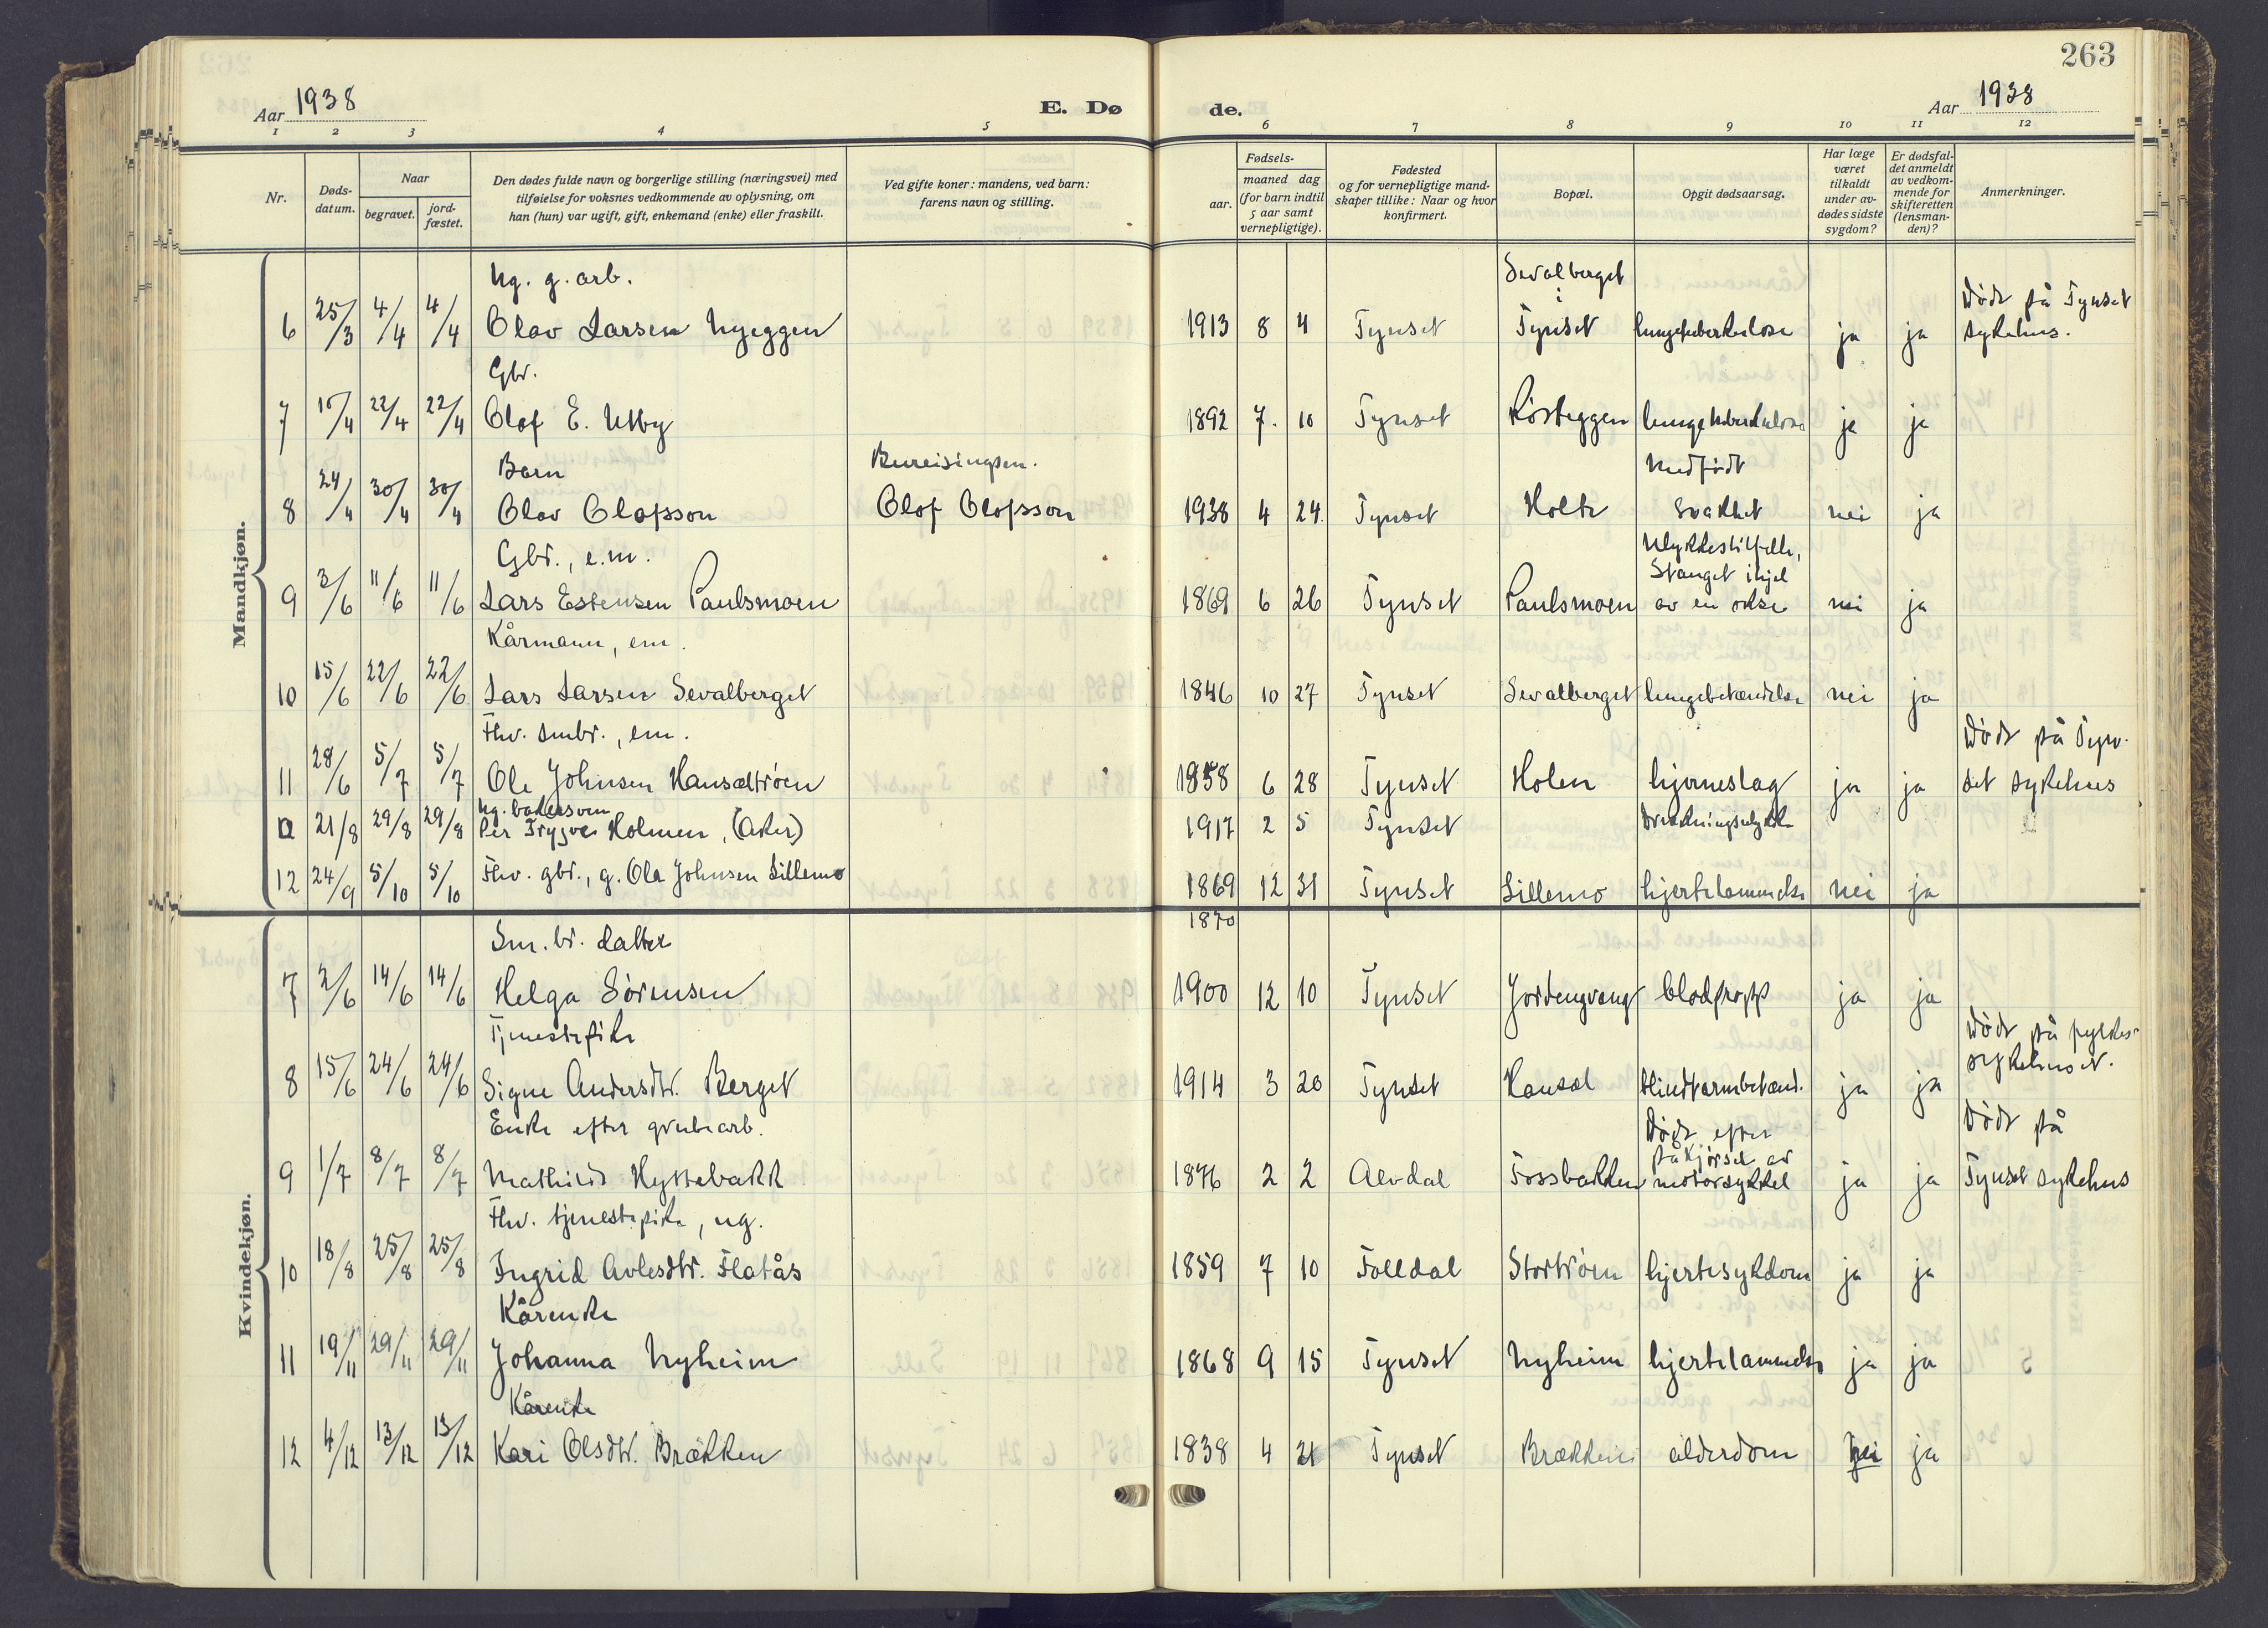 263
Aar 1938
E. Dø
de.
Aar 1938
1 2 3 4 5 6 7 8 9 10 11 12
Nr.
Døds-
datum.
Naar
begravet.
jord-
fæstet.
Den dødes fulde navn og borgerlige stilling (næringsvei) med
tilføielse for voksnes vedkommende av oplysning, om
han (hun) var ugift, gift, enkemand (enke) eller fraskilt.
Ved gifte koner: mandens, ved barn:
farens navn og stilling.
Fødsels-
aar.
maaned dag
(for barn indtil
5 aar samt
vernepligtige).
Fødested
og for vernepligtige mand-
skaper tillike: Naar og hvor
konfirmert.
Bopæl.
Opgit dødsaarsag.
Har læge
været
tilkaldt
under av-
dødes sidste
sygdom?
Er dødsfal-
det anmeldt
av vedkom-
mende for
skifteretten
(lensman-
den)?
Anmerkninger.
Mandkjøn.
Ug. g. arb. Sevalberget
i Dødt på Tynset
6 25/3 4/4 4/4 Olav Larsen Nyeggen 1913 8 4 Tynset Tynset lungetuberkulose ja ja sykehus.
Gbr.
7 15/4 22/4 22/4 Olof E. Utby 1892 7. 10 Tynset Røsteggen lungetuberkulose ja ja
Barn Bureisingsm. Medfødt
8 24/4 30/4 30/4 Olav Olofsson Olof Olofsson 1938 4 24. Tynset Holte svakhet nei ja
Gbr., e.m. Ulykkestilfelle,
Stanget ihjel
9 3/6 11/6 11/6 Lars Estensen Paulsmoen 1869 6 26 Tynset Paulsmoen av en okse nei ja
Kårmann, em.
10 15/6 22/6 22/6 Lars Larsen Sevalberget 1846 10 27 Tynset Sevalberget lungebetændelse nei ja
Fhv. smbr., em. Dødt på Tyn-
11 28/6 5/7 5/7 Ole Johnsen Hansæltrøen 1858 6 28 Tynset Holen hjerneslag ja ja set sykehus
Ug. bakersven
a 21/8 29/8 29/8 Per Trygve Holmen, (Aker) 1917 2 5 Tynset Drukningsulykke
12 24/9 5/10 5/10 Fhv. gbr., g. Ola Johnsen Lillemo 1869 12 31 Tynset Lillemo hjertelammelse nei ja
1870
Kvindekjøn.
Sm. br. datter
7 2/6 14/6 14/6 Helga Sørensen 1900 12 10 Tynset Jordengvang blodpropp ja ja
Tjenestepike Dødt på fylkes-
sykehuset.
8 15/6 24/6 24/6 Signe Andersdtr. Berget 1914 3 20 Tynset Hansæl blindtarmbetænd. ja ja
Enke efter grubearb. Dødt efter Dødt på
påkjørsel av
9 1/7 8/7 8/7 Mathilde Hyttebakk 1876 2 2 Alvdal Fossbakken motorsykkel ja ja Tynset sykehus
Fhv. tjenestepike, ug.
10 18/8 25/8 25/8 Ingrid Avlesdtr. Flatås 1859 7 10 Folldal Stortrøen hjertesykdom ja ja
Kårenke
11 19/11 29/11 29/11 Johanna Nyheim 1868 9 15 Tynset Nyheim hjertelammelse ja ja
Kårenke
12 4/12 13/12 13/12 Kari Olsdtr. Brækken 1838 4 21 Tynset Brækken alderdom nei ja